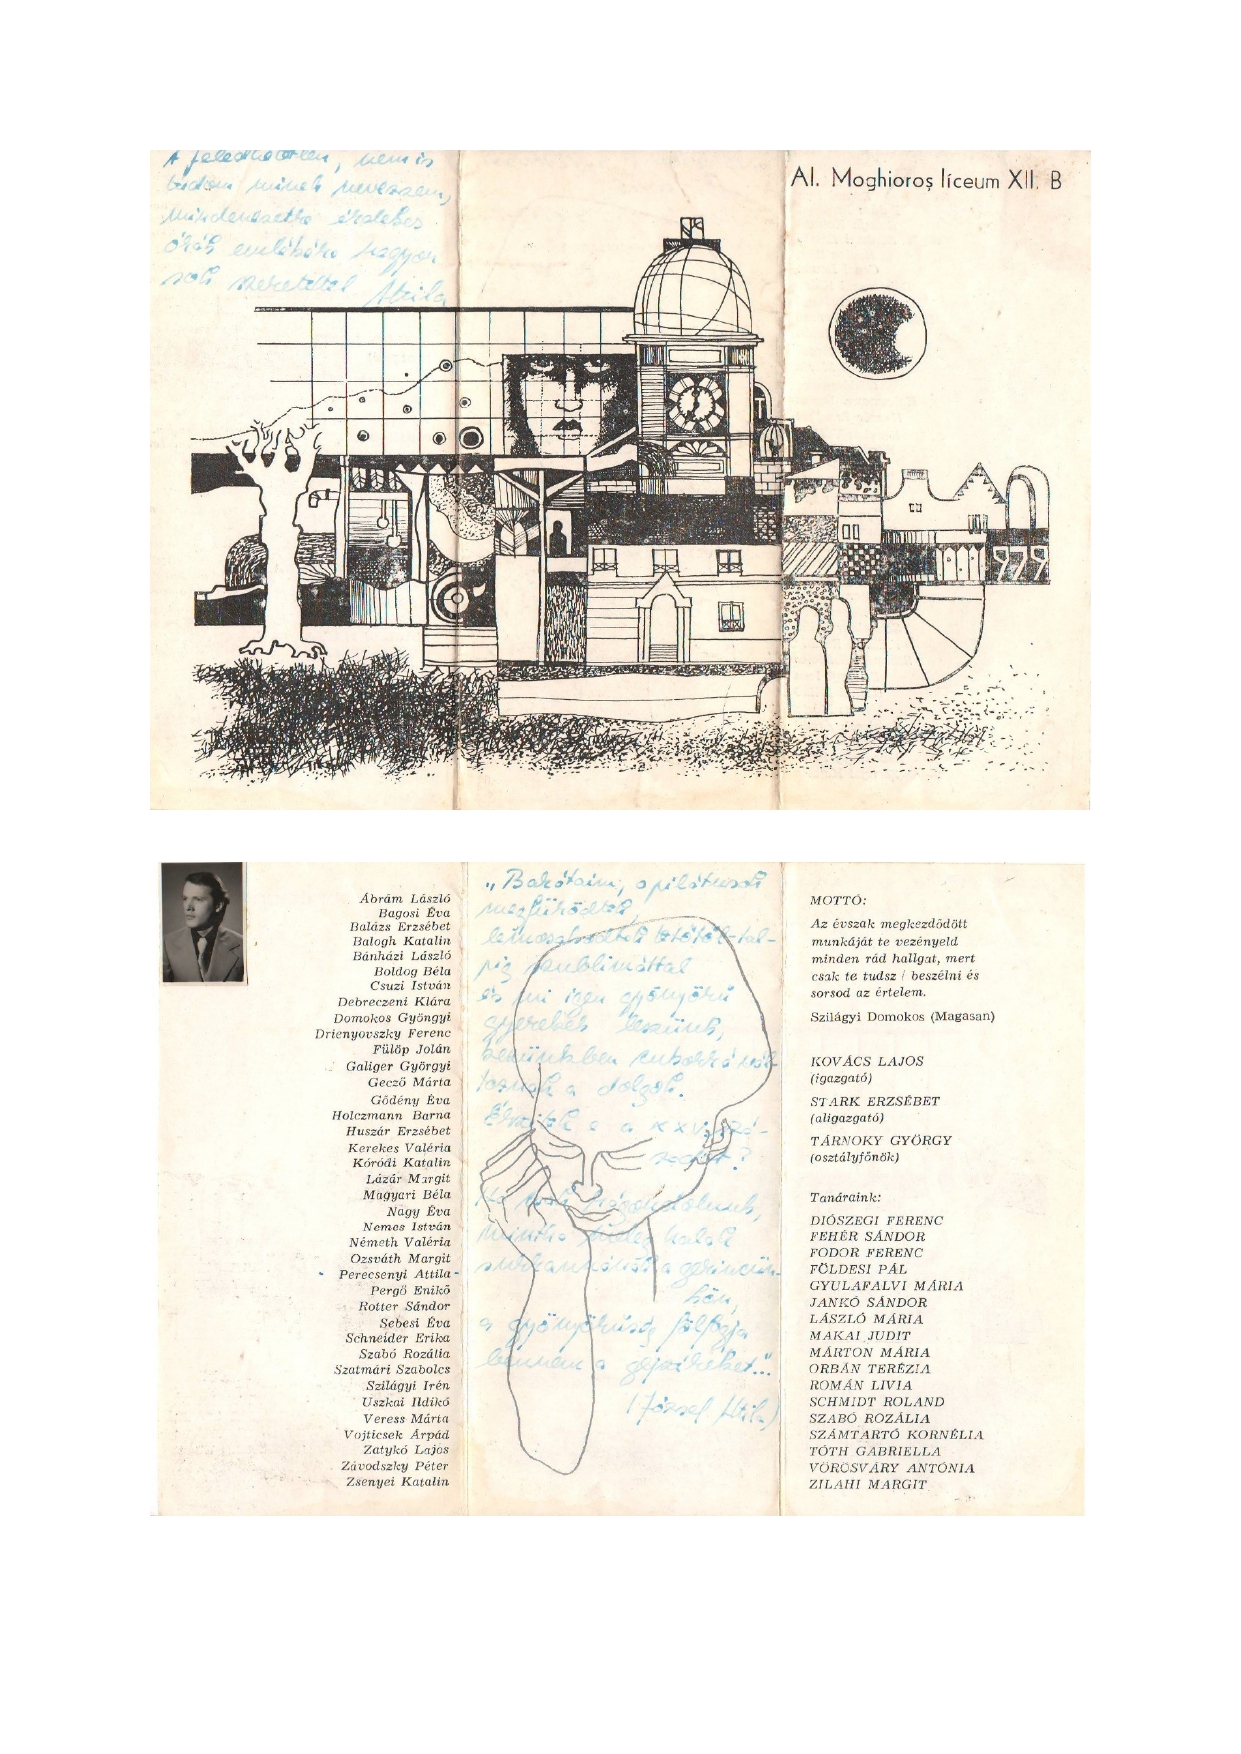 A feledhetetlen, nem is
tudom minek nevezzem,
mindenesetre érdekes
órák emlékére nagyon
sok szeretettel Attila
Al. Moghioroș líceum XII. B
1979
Ábrám László
Bagosi Éva
Balázs Erzsébet
Balogh Katalin
Bánházi László
Boldog Béla
Csuzi István
Debreczeni Klára
Domokos Gyöngyi
Drienyovszky Ferenc
Fülöp Jolán
Galiger Györgyi
Gecző Márta
Gödény Éva
Holczmann Barna
Huszár Erzsébet
Kerekes Valéria
Kóródi Katalin
Lázár Margit
Magyari Béla
Nagy Éva
Nemes István
Németh Valéria
Ozsváth Margit
Perecsenyi Attila
Pergő Enikő
Rotter Sándor
Sebesi Éva
Schneider Erika
Szabó Rozália
Szatmári Szabolcs
Szilágyi Irén
Uszkai Ildikó
Veress Márta
Vojticsek Árpád
Zatykó Lajos
Závodszky Péter
Zsenyei Katalin
„Bakótaim, a pilótusok
megfűhődtek,
tetőtől-tal-
pig szublimáttal
és mi igen gyönyörű
gyerekek leszünk,
kezünkben cukorkává vál-
toznak a dolgok.
Érzitek e a XXV. szá-
zadot?
gondolunk,
mintha meleg kalák
a gerincün-
kön,
a gyönyörűség fölfogja
bennem a gejzíreket..."
(József Attila)
MOTTÓ:
Az évszak megkezdődött
munkáját te vezényeld
minden rád hallgat, mert
csak te tudsz / beszélni és
sorsod az értelem.
Szilágyi Domokos (Magasan)
KOVÁCS LAJOS
(igazgató)
STARK ERZSÉBET
(aligazgató)
TÁRNOKY GYÖRGY
(osztályfőnök)
Tanáraink:
DIÓSZEGI FERENC
FEHÉR SÁNDOR
FODOR FERENC
FÖLDESI PÁL
GYULAFALVI MÁRIA
JANKÓ SÁNDOR
LÁSZLÓ MÁRIA
MAKAI JUDIT
MÁRTON MÁRIA
ORBÁN TERÉZIA
ROMÁN LIVIA
SCHMIDT ROLAND
SZABÓ ROZÁLIA
SZÁMTARTÓ KORNÉLIA
TÓTH GABRIELLA
VÖRÖSVÁRY ANTÓNIA
ZILAHI MARGIT